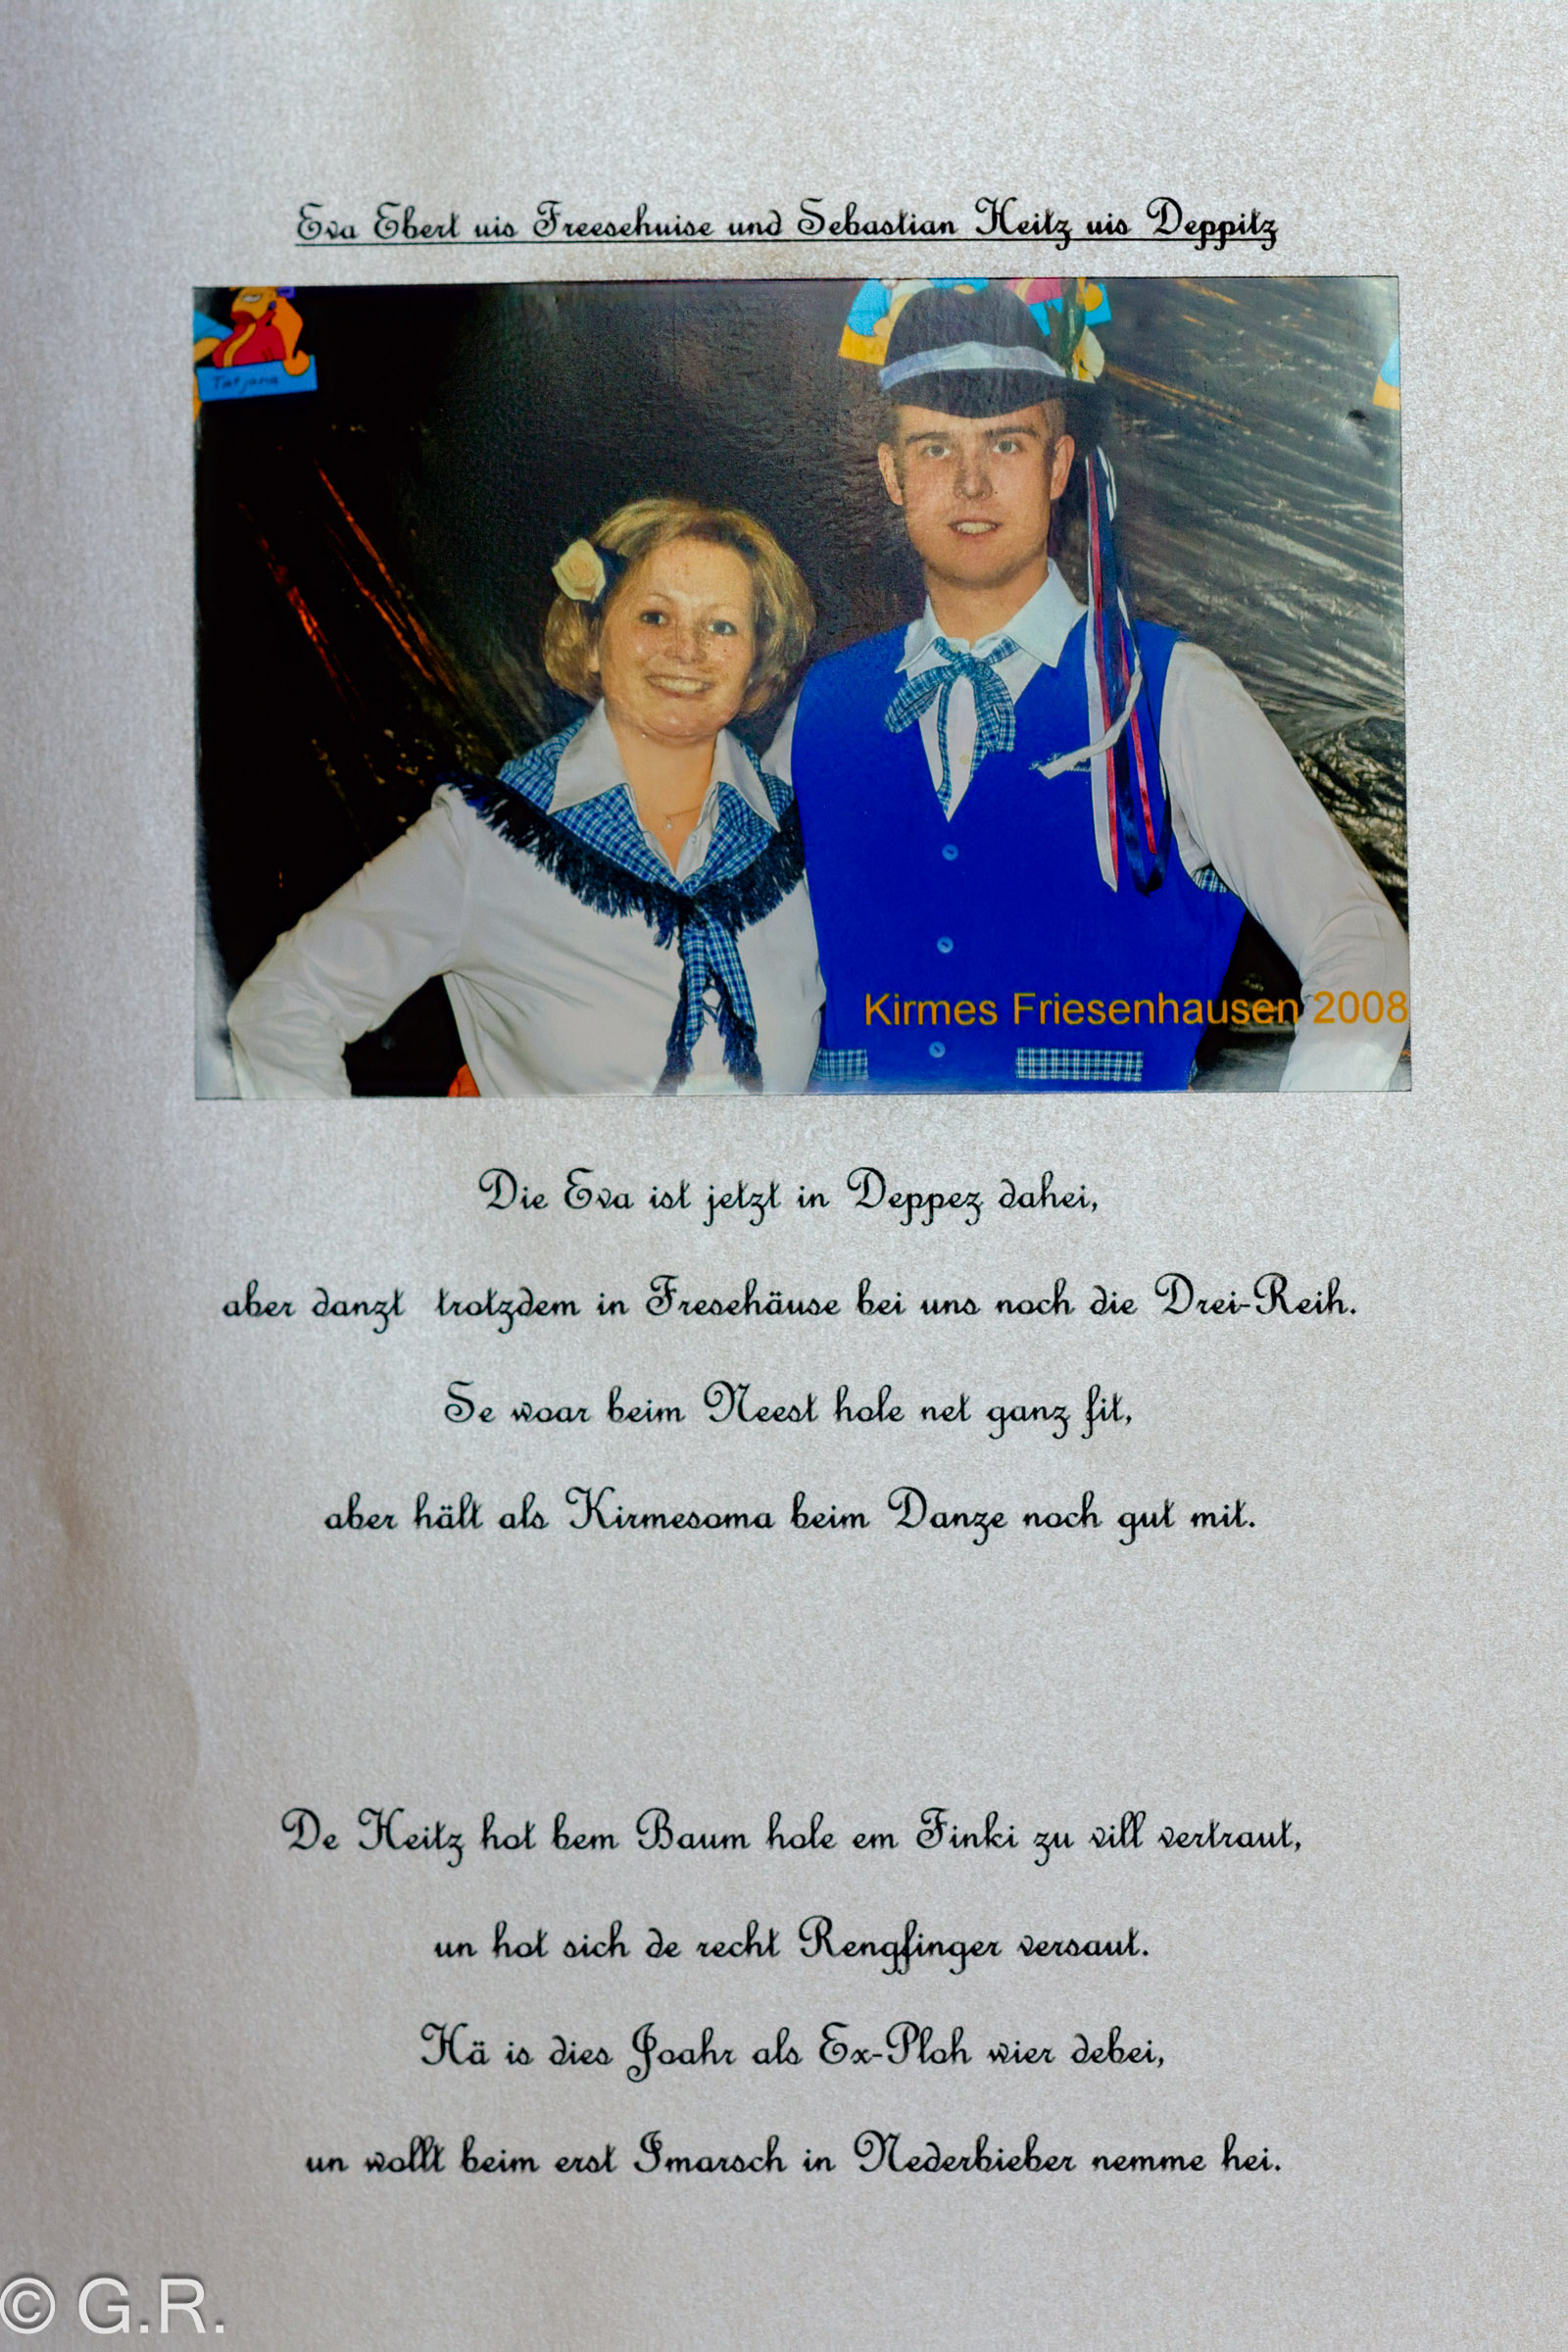 Eva Ebert uis Freesehuise und Sebastian Heitz uis Deppitz
Tatjana
Kirmes Friesenhausen 2008
Die Eva ist jetzt in Deppez dahei,
aber danzt trotzdem in Fresehäuse bei uns noch die Drei-Reih.
Se woar beim Neest hole net ganz fit,
aber hält als Kirmesoma beim Danze noch gut mit.
De Heitz hot bem Baum hole em Finki zu vill vertraut,
un hot sich de recht Rengfinger versaut.
Hä is dies Joahr als Ex-Ploh wier debei,
un wollt beim erst Imarsch in Nederbieber nemme hei.
© G.R.